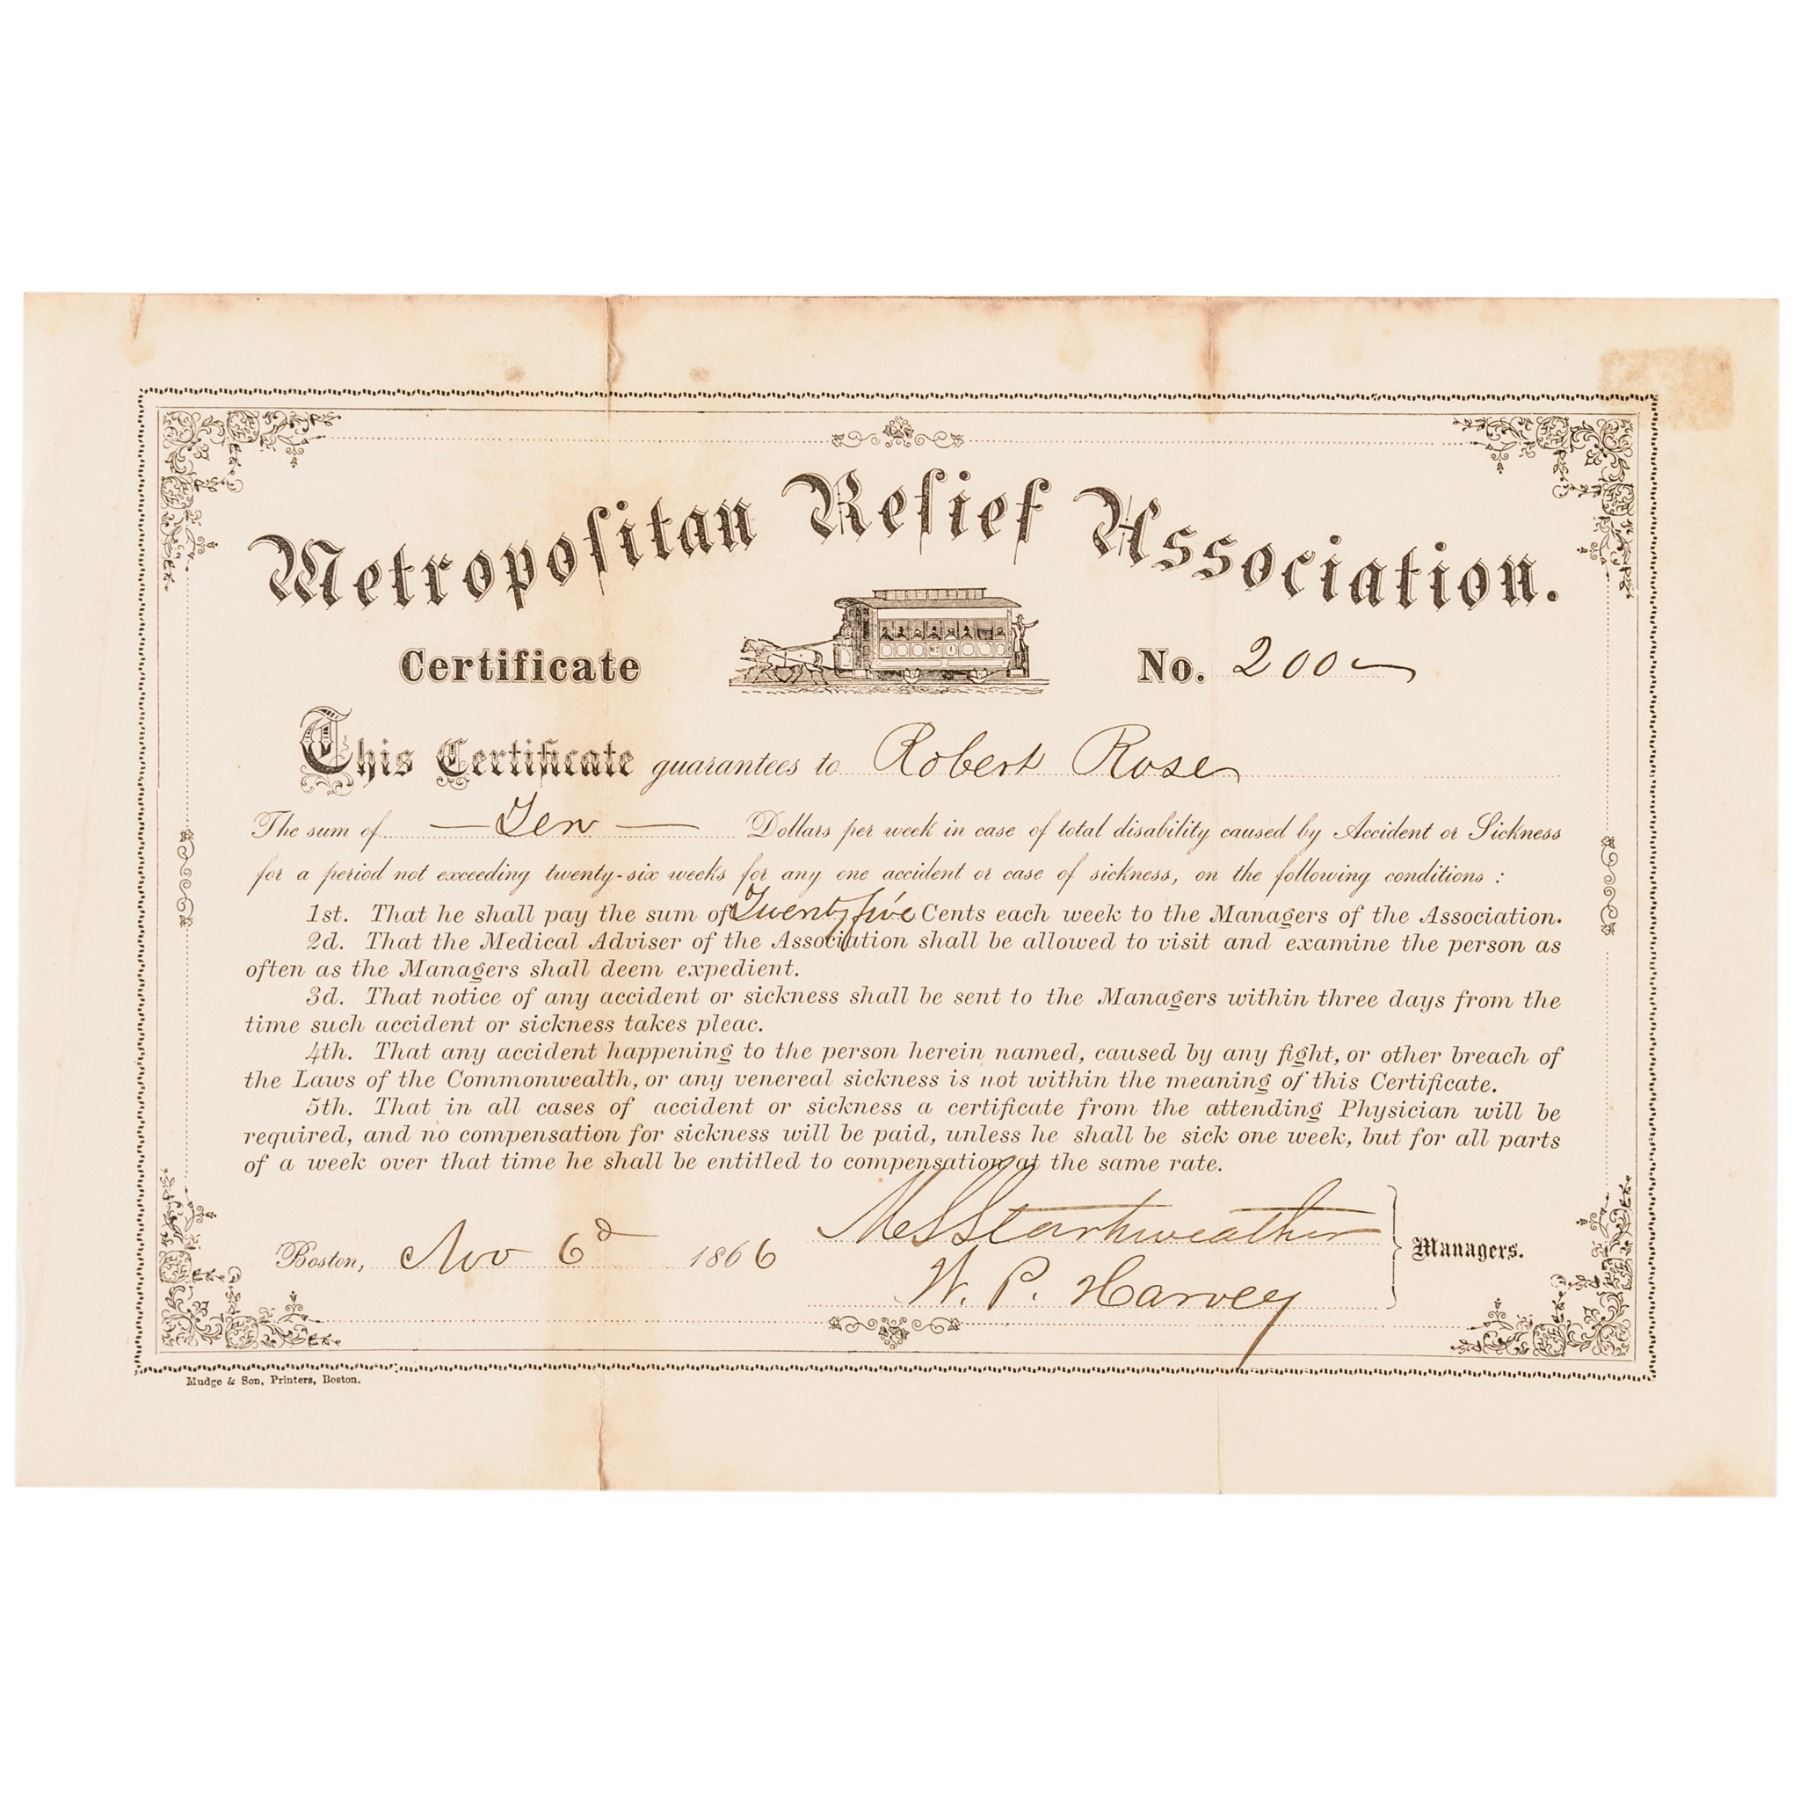 Metropolitan Relief Association.
Certificate No. 200
This Certificate guarantees to Robert Rose
The sum of Ten Dollars per week in case of total disability caused by Accident or Sickness
for a period not exceeding twenty-six weeks for any one accident or case of sickness, on the following conditions :
1st. That he shall pay the sum of Twenty five Cents each week to the Managers of the Association.
2d. That the Medical Adviser of the Association shall be allowed to visit and examine the person as
often as the Managers shall deem expedient.
3d. That notice of any accident or sickness shall be sent to the Managers within three days from the
time such accident or sickness takes pleac.
4th. That any accident happening to the person herein named, caused by any fight, or other breach of
the Laws of the Commonwealth, or any venereal sickness is not within the meaning of this Certificate.
5th. That in all cases of accident or sickness a certificate from the attending Physician will be
required, and no compensation for sickness will be paid, unless he shall be sick one week, but for all parts
of a week over that time he shall be entitled to compensation at the same rate.
Boston, Nov 6d 1866
Starkweather
W. P. Harvey
Managers.
Mudge & Son, Printers, Boston.